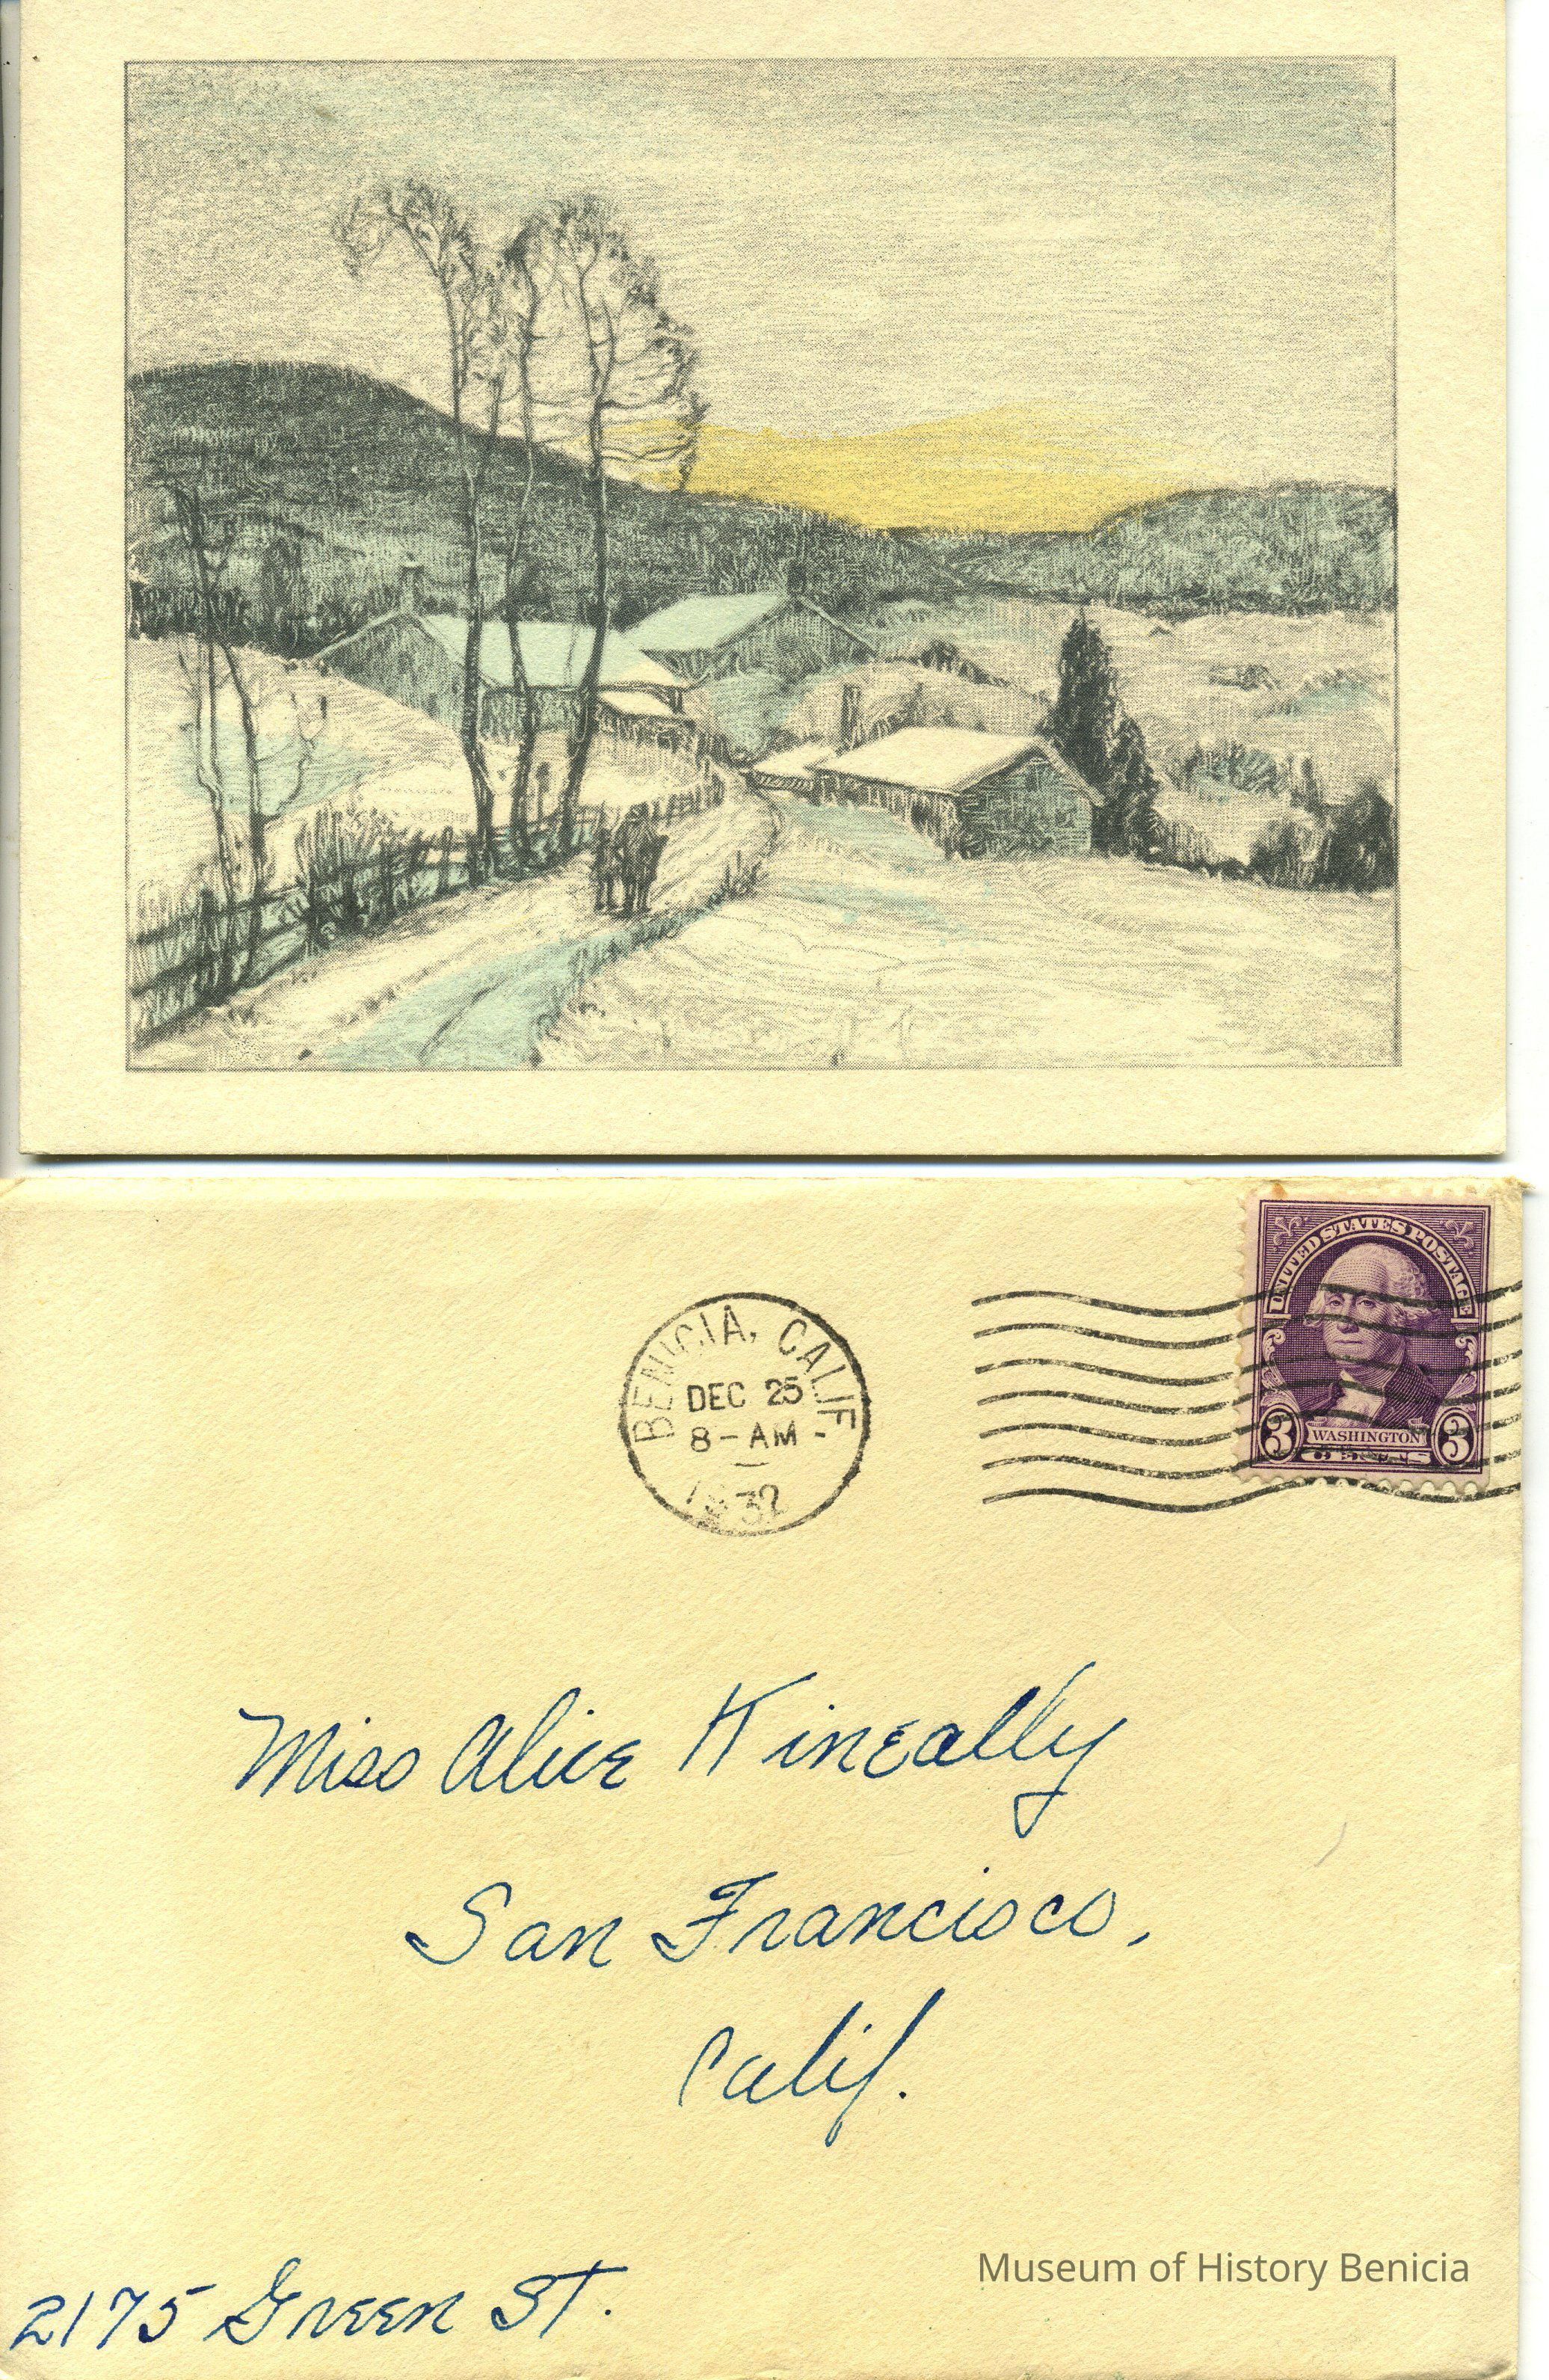 BENICIA, CALIF
DEC 25
8-AM-
1932
UNITED STATES POSTAGE
3 WASHINGTON 3
Miss Alice Kineally
San Francisco,
Calif.
2175 Green St.
Museum of History Benicia